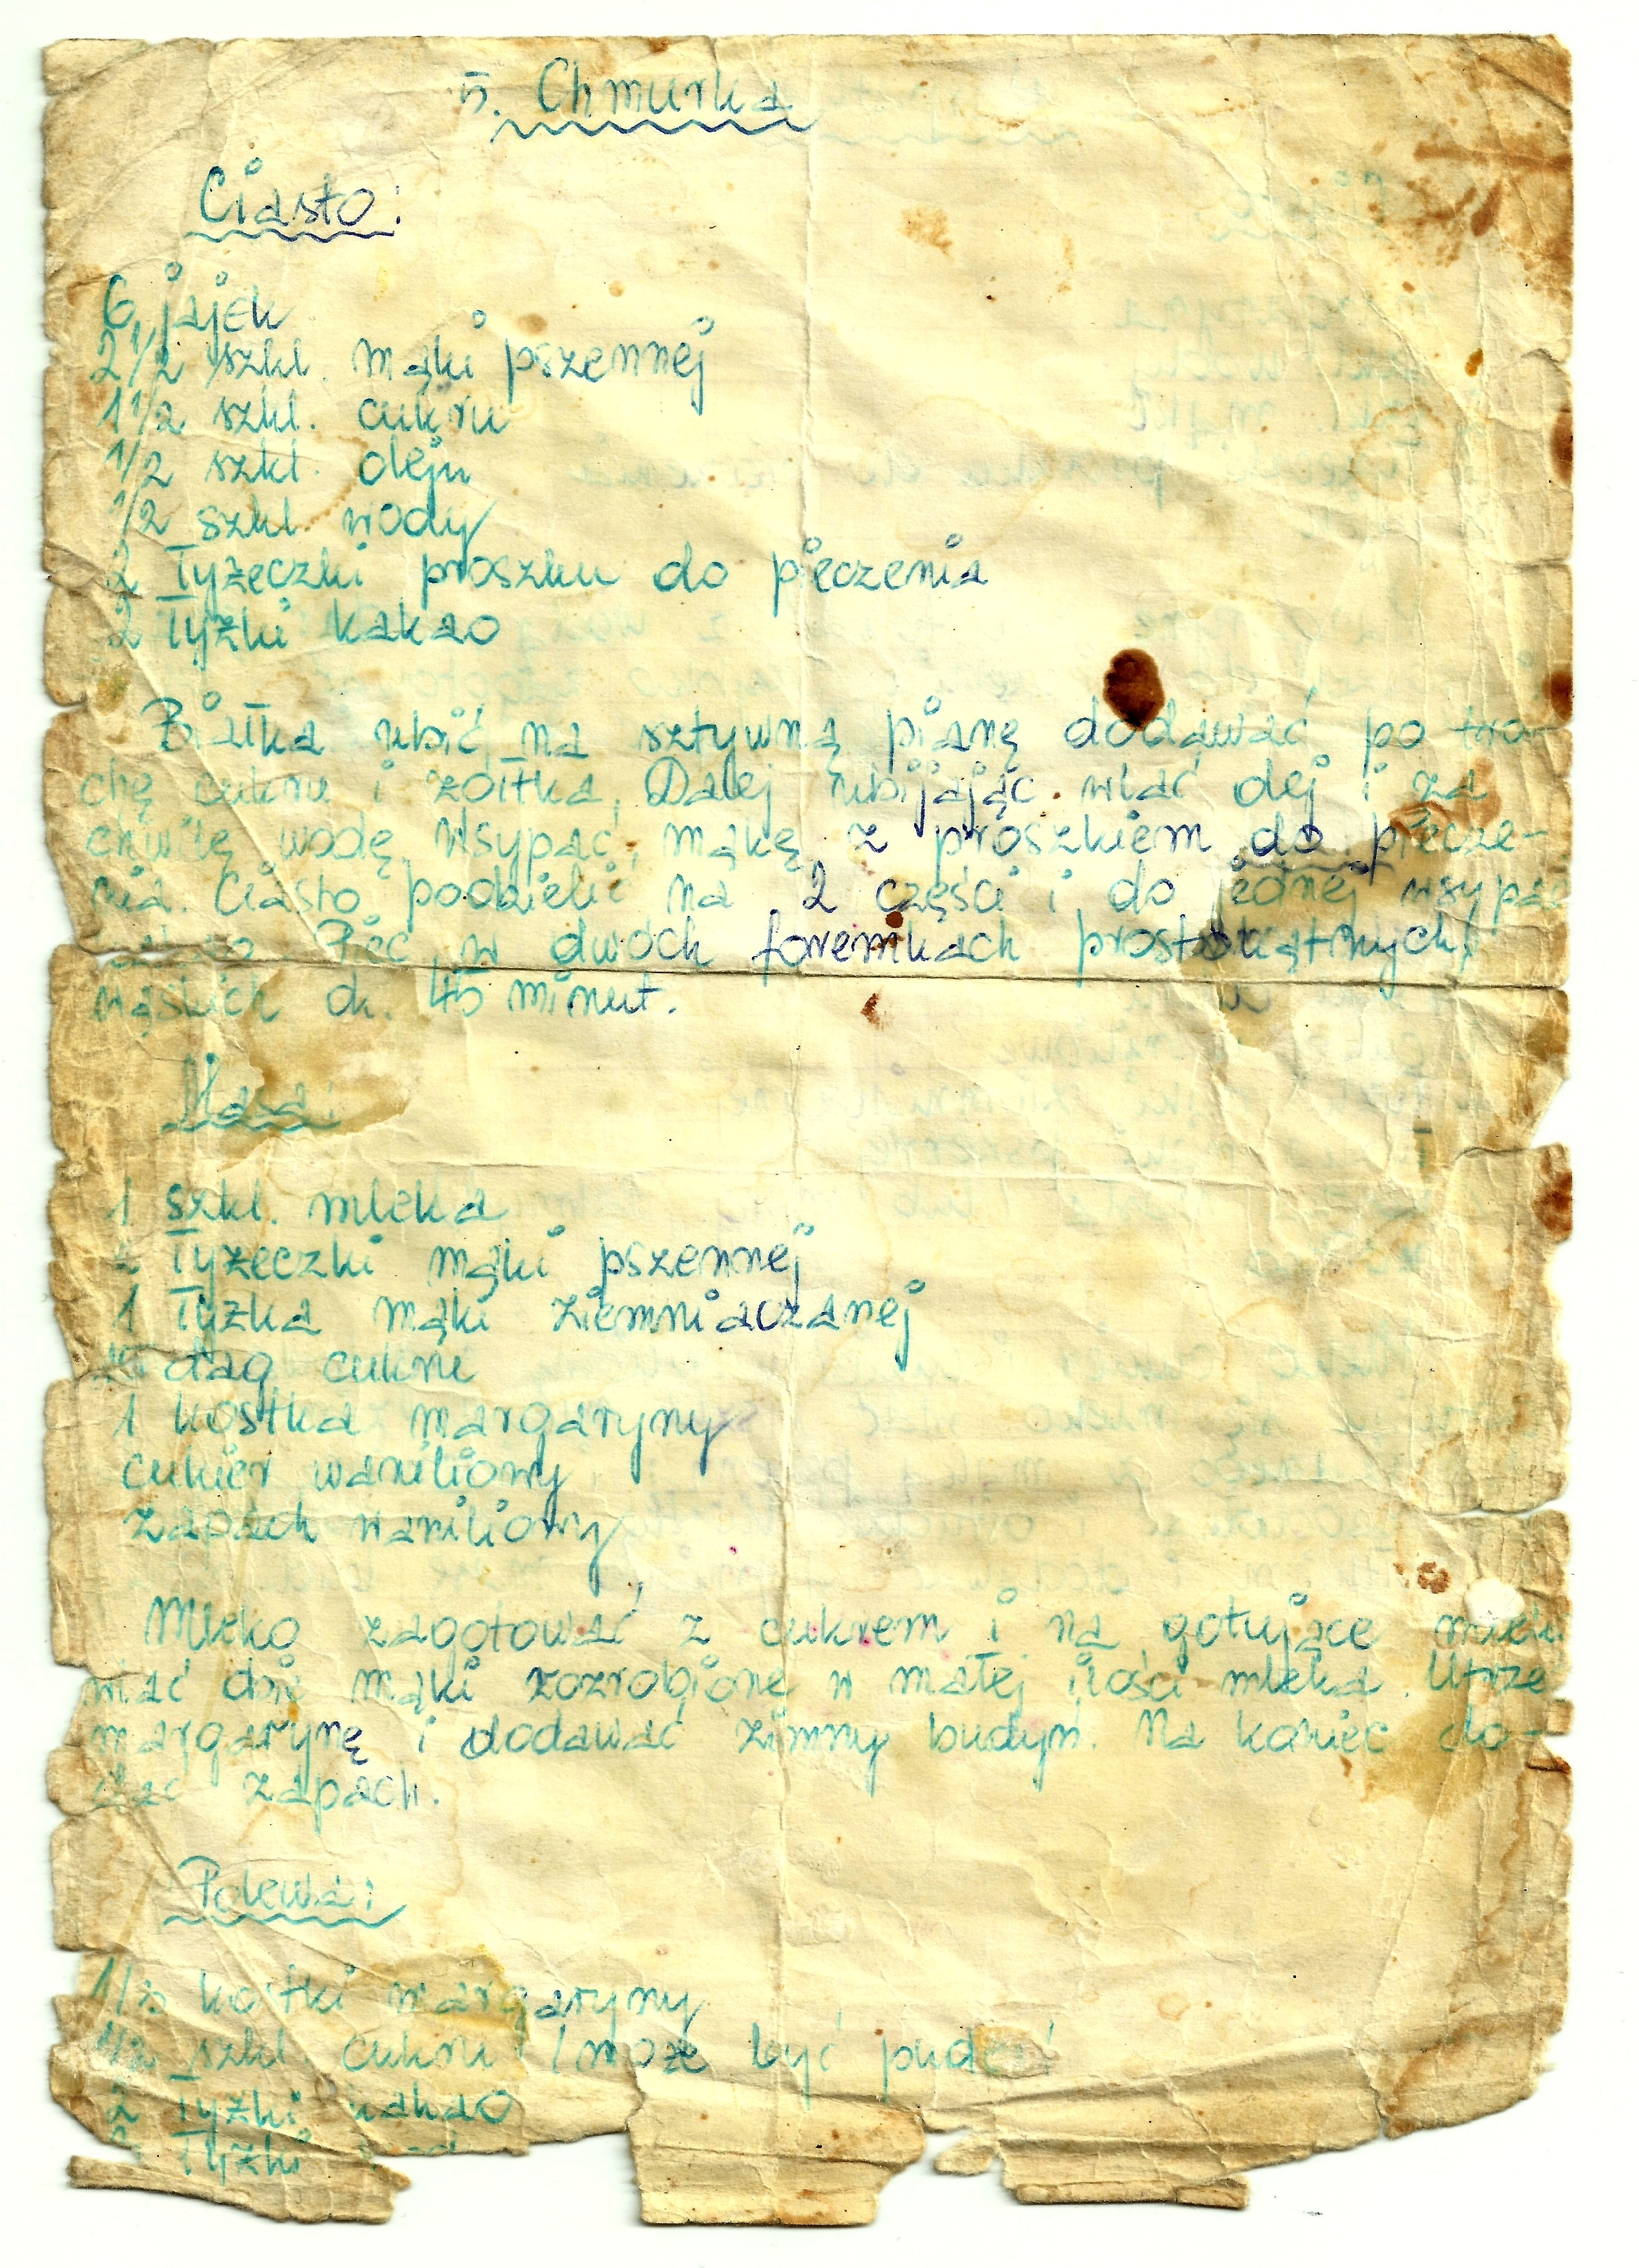 5. Chmurka
Ciasto:
6 jajek
2 1/2 szkl. mąki pszennej
1 1/2 szkl. cukru
1/2 szkl. oleju
1/2 szkl. wody
2 łyżeczki proszku do pieczenia
2 łyżki kakao
Białka ubić na sztywną pianę dodawać po tro-
chę cukru i żółtka. Dalej ubijając wlać olej i za
chwilę wodę. Wsypać mąkę z proszkiem do piecze-
nia. Ciasto podzielić na 2 części i do jednej wsypać
Piec w dwóch foremkach prostokątnych,
wąskich ok. 45 minut.
Masa:
1 szkl. mleka
łyżeczki mąki pszennej
1 łyżka mąki ziemniaczanej
dag cukru
1 kostka margaryny
cukier waniliowy
zapach waniliowy
Mleko zagotować z cukrem i na gotujące
wlać obie mąki rozrobione w małej ilości mleka. Utrze
margarynę i dodawać zimny budyń. Na koniec do-
dać zapach.
Polewa:
1/3 kostki margaryny
1/2 szkl. cukru /może być puder/
2 łyżki kakao
łyżki